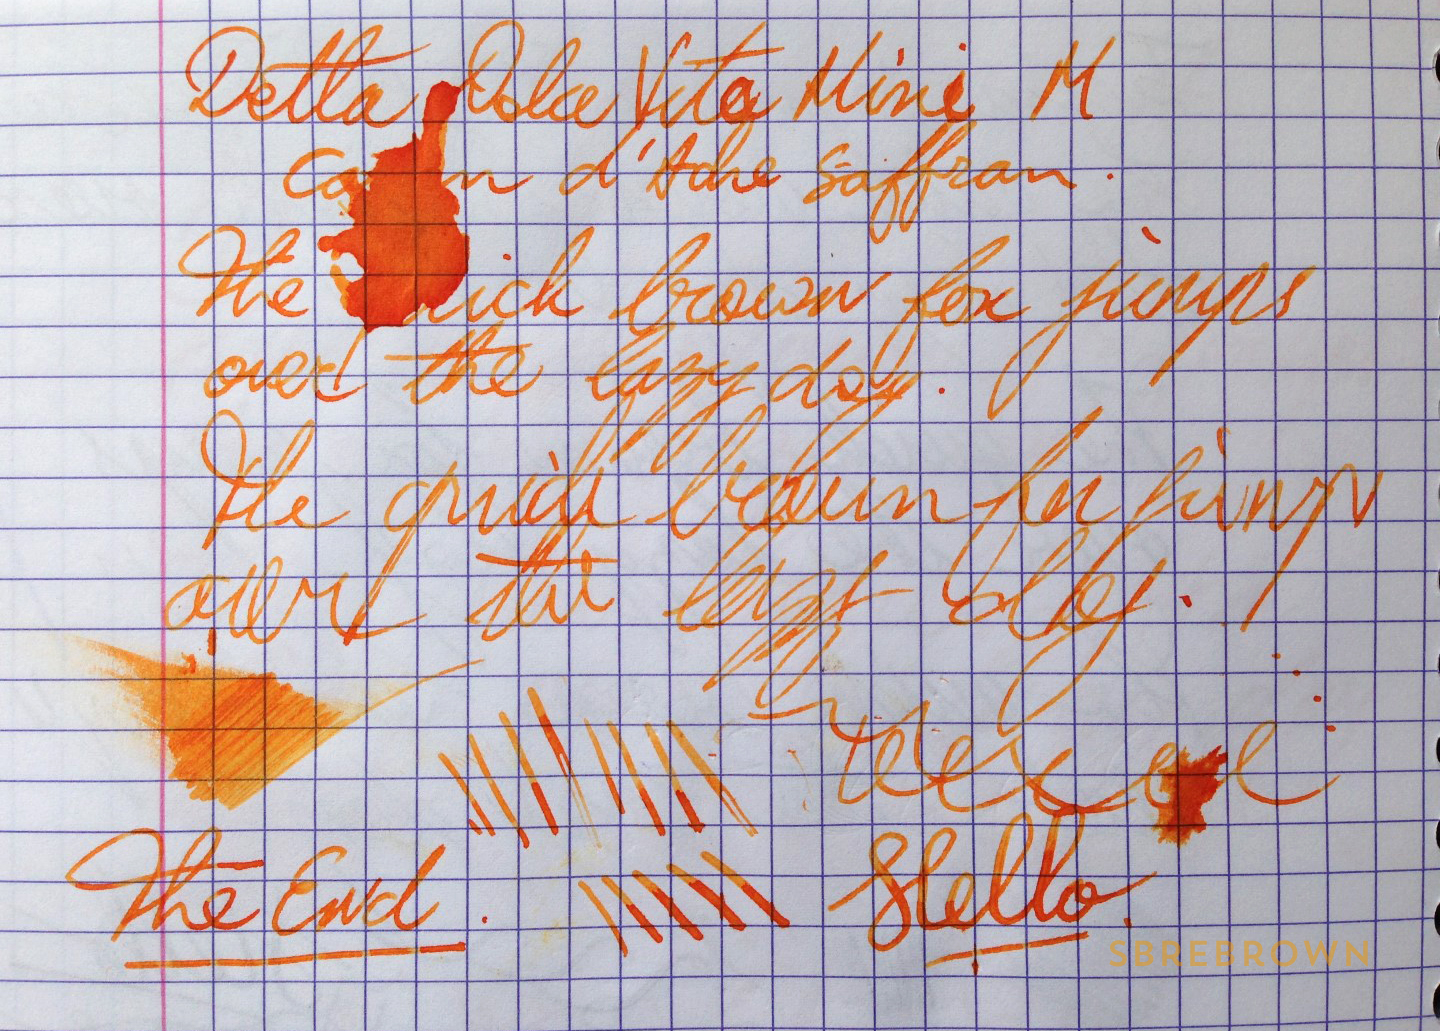 Delta Dolce Vita Mini M
Caran d'Ache Saffran.
The quick brown fox jumps
over the lazy dog.
The quick brown fox jumps
over the lazy dog.
The End.
Hello.
SBREBROWN